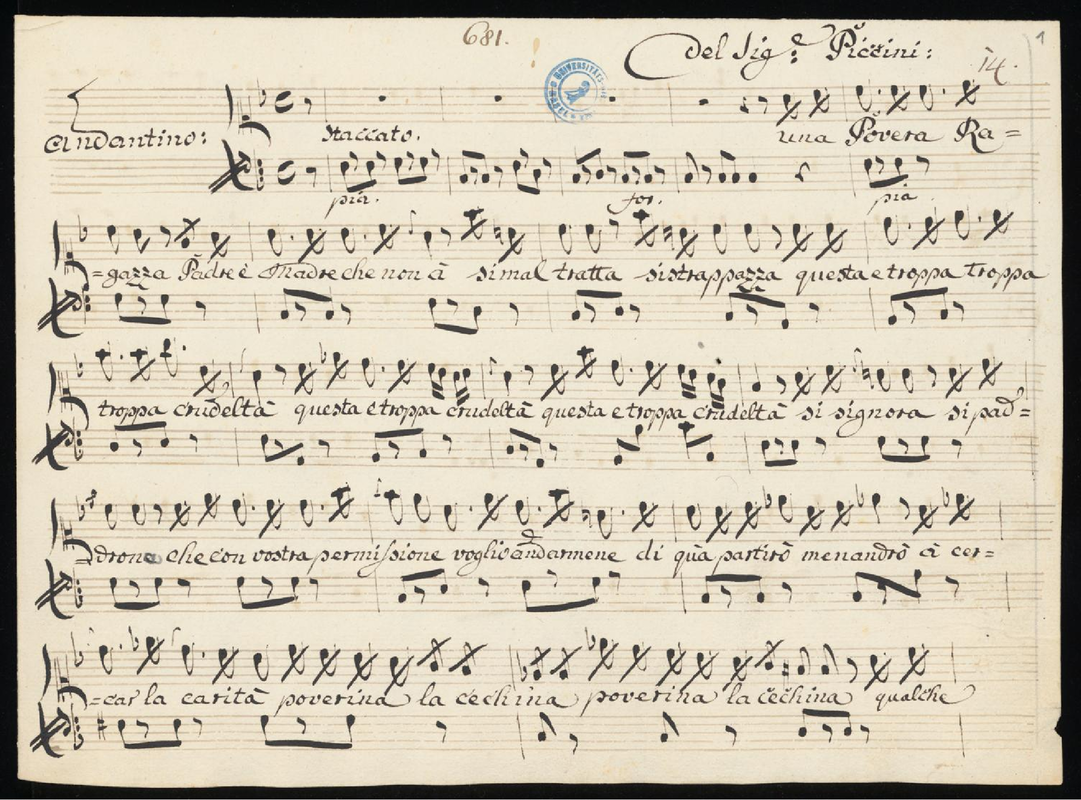 681.
Del Sig.e Piccini:
14.
1
Andantino:
Staccato.
una Povera Ra=
pia.
for.
pia
=gazza Padre è Madre che non à si mal tratta si strappazza questa e troppa troppa
troppa crudeltà questa e troppa crudeltà questa e troppa crudeltà si signora si pad=
=drona che con vostra permissione voglio andarmene di quà partirò menandrò à cer=
=car la carità poverina la cechina poverina la cechina qualche